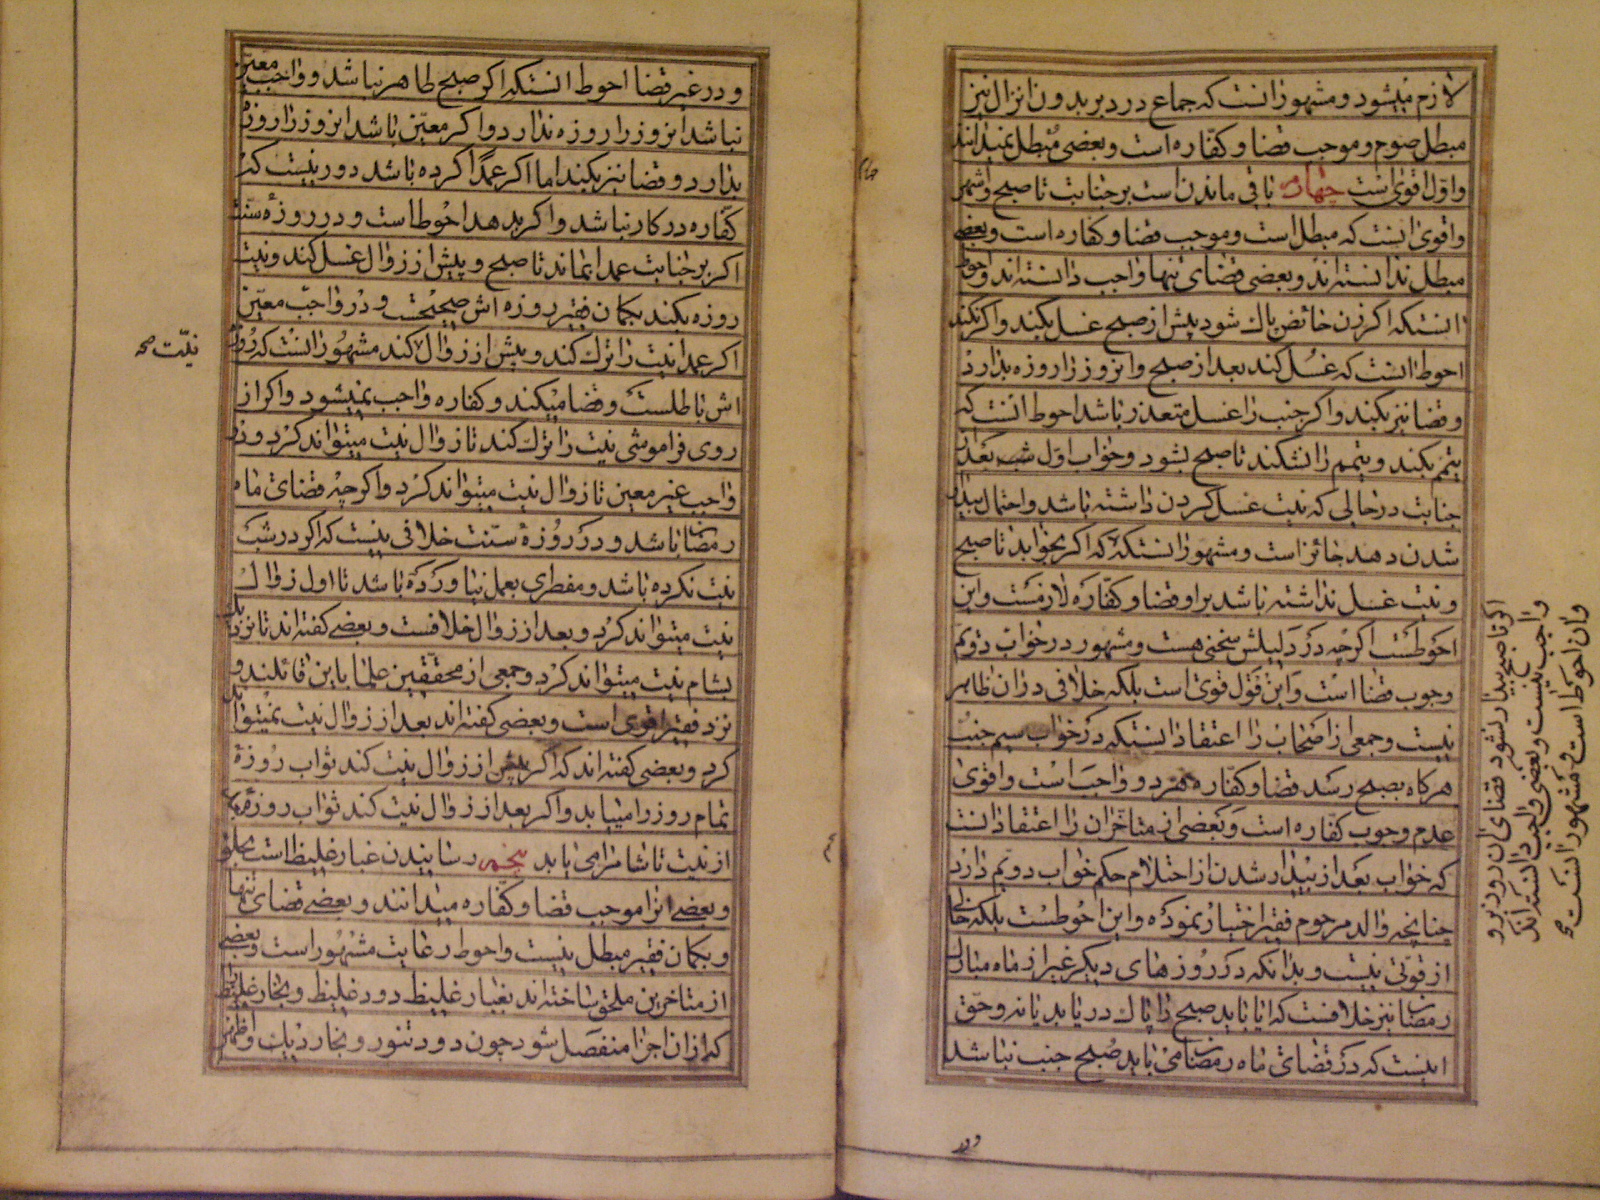 لازم میشود و مشهور انست که جماع در دبر بدون انزال نیز
مبطل صوم و موجب قضا و کفّاره است و بعضی مبطل نمیدانند
و اوّل اقوی است چهارم باقی ماندن است بر جنابت تا صبح و اشهر
و اقوی انست که مبطل است و موجب قضا و کفاره است و بعضی
مبطل ندانسته اند و بعضی قضای تنها واجب دانسته اند و احوط
انستکه اکر زن حائض پاك شود پیش از صبح غسل بکند و اکر نکند
احوط انست که غسل کند بعد از صبح و انروز را روزه بدارد
و قضا نیز بکند و اکر جنب را غسل متعذر باشد احوط انست که
تیمم بکند و تیمم را نشکند تا صبح بشود و خواب اوّل شب بعد از
جنابت در حالی که نیت غسل کردن داشته باشد و احتمال بیدار
شدن دهد جائز است و مشهور انستکه که اکر بخوابد تا صبح
و نیت غسل نداشته باشد بر او قضا و کفّاره لازمست و این
احوطست اکرچه در دلیلش سخنی هست و مشهور در خواب دویّم
وجوب قضا است و این قول قوی است بلکه خلافی در ان ظاهر
نیست و جمعی از اصحاب را اعتقاد انستکه در خواب سیم جنب
هرکاه بصبح رسد قضا و کفّاره هر دو واجب است و اقوی
عدم وجوب کفاره است و بعضی از متأخران را اعتقاد انست
که خواب بعد از بیدار شدن از احتلام حکم خواب دویّم دارد
چنانچه والد مرحوم فقیر اختیار نموده و این احوطست بلکه خالی
از قوتی نیست و بدانکه در روزهای دیکر غیر از ماه مبارك
رمضان نیز خلافست که ایا باید صبح را پاك دریابد یا نه و حق
اینست که در قضای ماه رمضان می باید صبح جنب نباشد
اکر تا صبح بیدار نشود قضای آن روز بر او
واجب نیست و بعضی واجب دانسته اند
و ان احوط است و مشهور انست
و در غیر قضا احوط انستکه اکر صبح طاهر نباشد و واجب معیّن
نباشد انروز را روزه ندارد و اکر معیّن باشد انروز را روزه
بدارد و قضا نیز بکند اما اکر عمداً کرده باشد دور نیست که
کفّاره در کار نباشد و اکر بدهد احوط است و در روزهٔ سنت
اکر بر جنابت عمدا بماند تا صبح و پیش از زوال غسل کند و نیت
روزه بکند بکمان فقیر روزه اش صحیحست و در واجب معیّن
اکر عمدا نیت را ترك کند و پیش از زوال کند مشهور انست که روزه
نیّت صح
اش باطلست و قضا میکند و کفاره واجب نمیشود و اکر از
روی فراموشی نیت را ترك کند تا زوال نیت میتواند کرد و در
واجب غیر معین تا زوال نیت میتواند کرد و اکرچه قضای ماه
رمضان باشد و در روزهٔ سنت خلافی نیست که اکر در شب
نیت نکرده باشد و مفطری بعمل نیاورده باشد تا اول زوال
نیت میتواند کرد و بعد از زوال خلافست و بعضی کفته اند تا نزدیك
بشام نیت میتواند کرد و جمعی از محققین علما باین قائلند و
نزد فقیر اقوی است و بعضی کفته اند بعد از زوال نیت نمیتوان
کرد و بعضی کفته اند که اکر پیش از زوال نیت کند ثواب روزهٔ
تمام روز را مییابد و اکر بعد از زوال نیت کند ثواب روزه
از نیت تا شام را می یابد پنجم رسانیدن غبار غلیظ است بحلق
و بعضی انرا موجب قضا و کفّاره میدانند و بعضی قضای تنها
و بکمان فقیر مبطل نیست و احوط رعایت مشهور است و بعضی
از متاخرین ملحق ساخته اند بغبار غلیظ دود غلیظ و بخار غلیظ
که از ان اجزا منفصل شود چون دود تنور و بخار دیك و اظهر